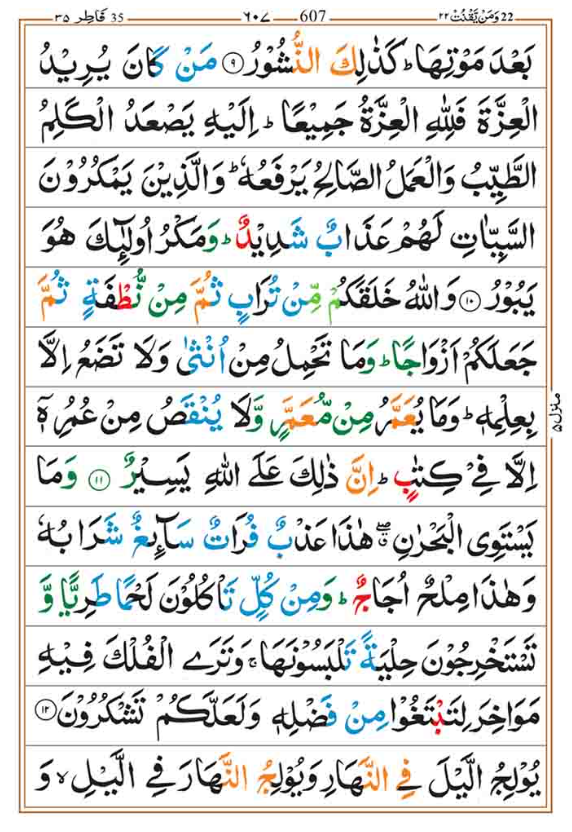 22 وَمَنْ يَّقْنُتْ ٢٢ 607 ٦٠٧ 35 فَاطِر ٣٥
بَعْدَ مَوْتِهَا ؕ كَذٰلِكَ النُّشُوْرُ ۹ مَنْ كَانَ يُرِيْدُ
الْعِزَّةَ فَلِلّٰهِ الْعِزَّةُ جَمِيْعًا ؕ اِلَيْهِ يَصْعَدُ الْكَلِمُ
الطَّيِّبُ وَالْعَمَلُ الصَّالِحُ يَرْفَعُهٗ ؕ وَالَّذِيْنَ يَمْكُرُوْنَ
السَّيِّاٰتِ لَهُمْ عَذَابٌ شَدِيْدٌ ؕ وَمَكْرُ اُولٰٓئِكَ هُوَ
يَبُوْرُ ۱۰ وَاللّٰهُ خَلَقَكُمْ مِّنْ تُرَابٍ ثُمَّ مِنْ نُّطْفَةٍ ثُمَّ
جَعَلَكُمْ اَزْوَاجًا ؕ وَمَا تَحْمِلُ مِنْ اُنْثٰى وَلَا تَضَعُ اِلَّا
بِعِلْمِهٖ ؕ وَمَا يُعَمَّرُ مِنْ مُّعَمَّرٍ وَّلَا يُنْقَصُ مِنْ عُمُرِهٖٓ
اِلَّا فِيْ كِتٰبٍ ؕ اِنَّ ذٰلِكَ عَلَى اللّٰهِ يَسِيْرٌ ۱۱ وَمَا
يَسْتَوِى الْبَحْرٰنِ ۖ هٰذَا عَذْبٌ فُرَاتٌ سَآئِغٌ شَرَابُهٗ
وَهٰذَا مِلْحٌ اُجَاجٌ ؕ وَمِنْ كُلٍّ تَاْكُلُوْنَ لَحْمًا طَرِيًّا وَّ
تَسْتَخْرِجُوْنَ حِلْيَةً تَلْبَسُوْنَهَا ۚ وَتَرَى الْفُلْكَ فِيْهِ
مَوَاخِرَ لِتَبْتَغُوْا مِنْ فَضْلِهٖ وَلَعَلَّكُمْ تَشْكُرُوْنَ ۱۲
يُوْلِجُ الَّيْلَ فِي النَّهَارِ وَيُوْلِجُ النَّهَارَ فِي الَّيْلِ ۙ وَ
منزل ۵